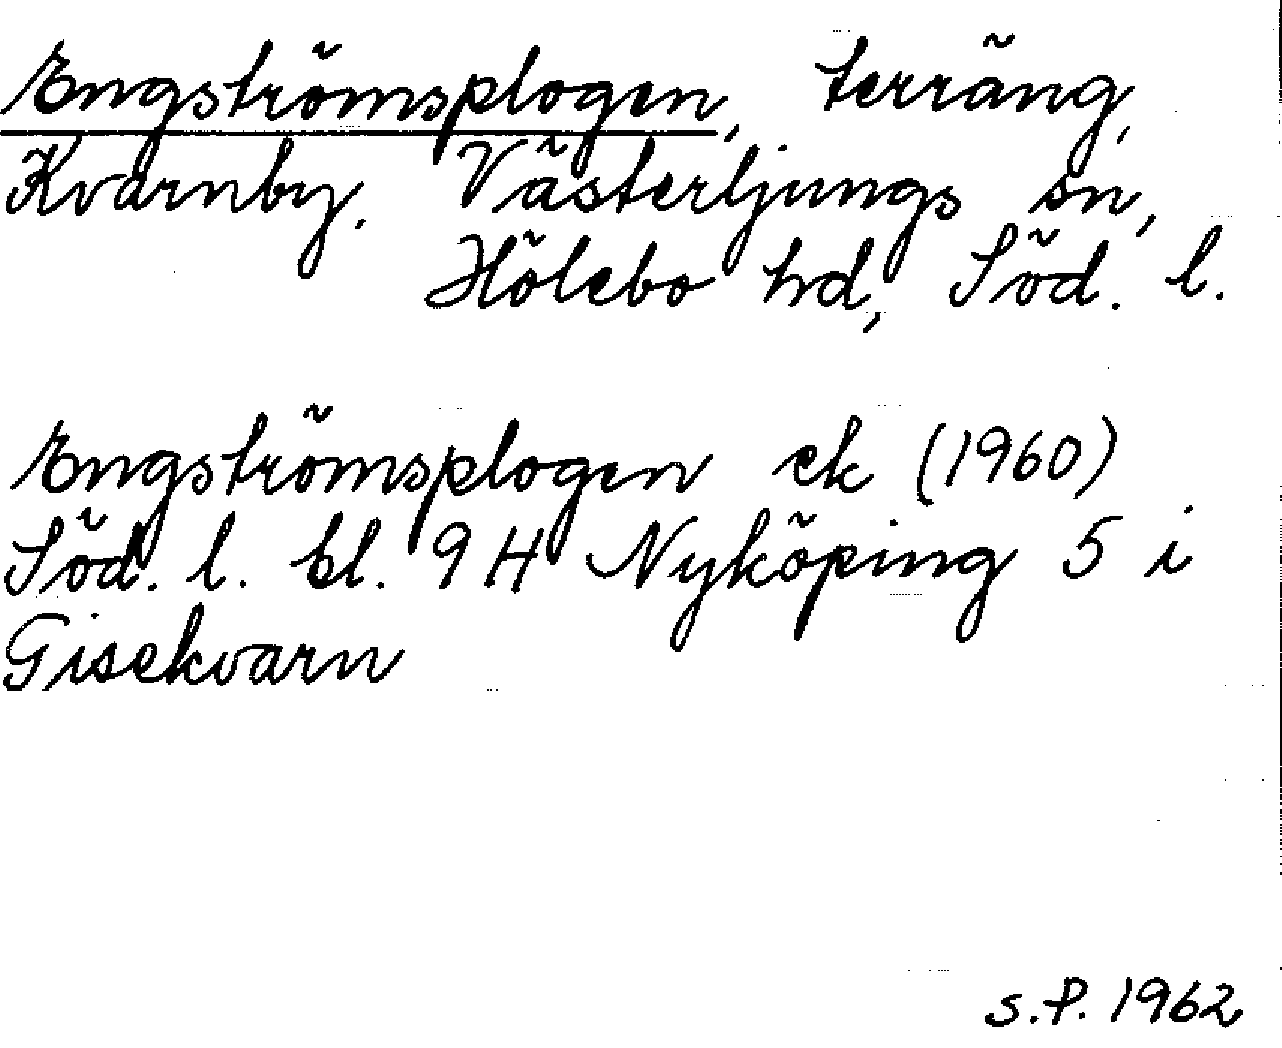 Engströmsplogen, terräng,
Kvarnby. Västerljungs sn,
Hölebo hd, Söd. l.
Engströmsplogen ek (1960)
Söd. l. bl. 9 H Nyköping 5 i
Gisekvarn
S.P. 1962